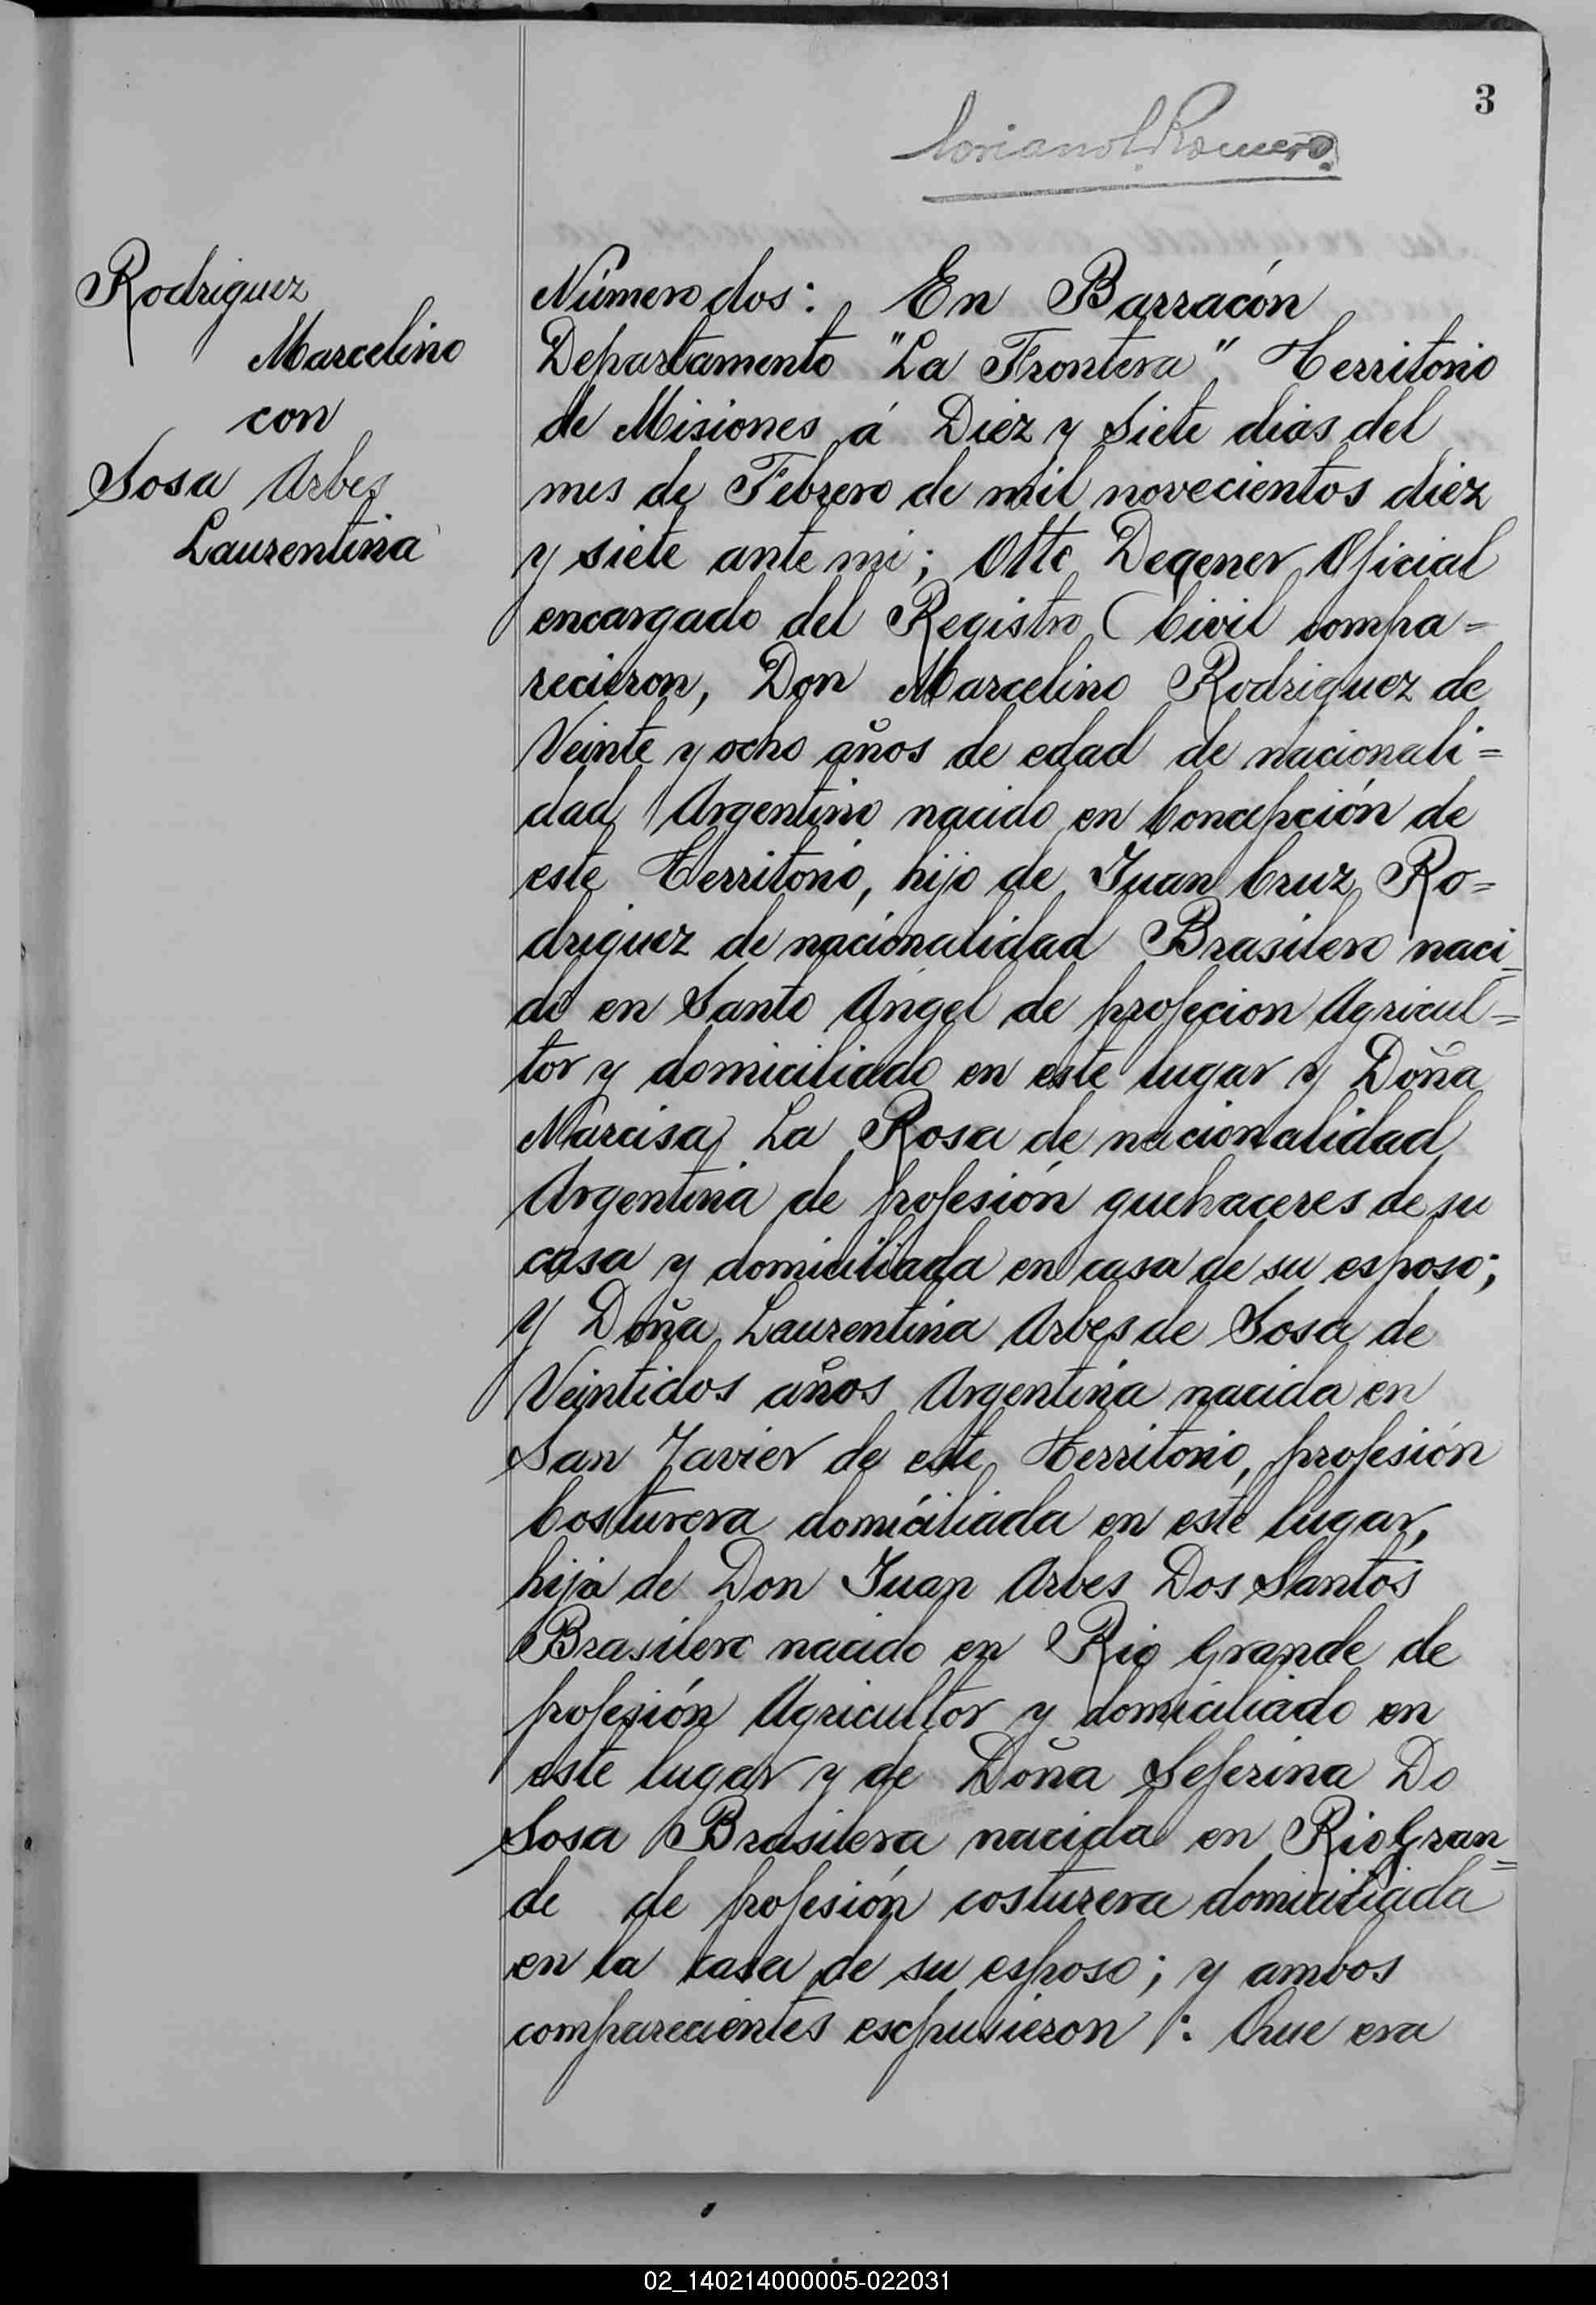 3
Romero
Rodriguez
Marcelino
con
Sosa Arbes
Laurentina
Número dos: En Barracón
Departamento "La Frontera", Territorio
de Misiones á Diez y Siete dias del
mes de Febrero de mil novecientos diez
y siete ante mi; Otto Degener Oficial
encargado del Registro Civil compa=
recieron, Don Marcelino Rodriguez de
Veinte y ocho años de edad de nacionali=
dad Argentino nacido en Concepción de
este Territorio, hijo de Juan Cruz Ro=
driguez de nacionalidad Brasilero naci=
do en Santo Angel de profecion Agricul=
tor y domiciliado en este lugar y Doña
Narcisa La Rosa de nacionalidad
Argentina de profesión quehaceres de su
casa y domiciliada en casa de su esposo;
Y Doña Laurentina Arbes de Sosa de
Veintidos años Argentina nacida en
San Javier de este Territorio, profesión
Costurera domiciliada en este lugar,
hija de Don Juan Arbes Dos Santos
Brasilero nacido en Rio Grande de
profesión Agricultor y domiciliado en
este lugar y de Doña Seferina Do
Sosa Brasilera nacida en Rio Gran=
de de profesión costurera domiciliada
en la casa de su esposo; y ambos
comparecientes escpusieron: Que era
02_140214000005-022031